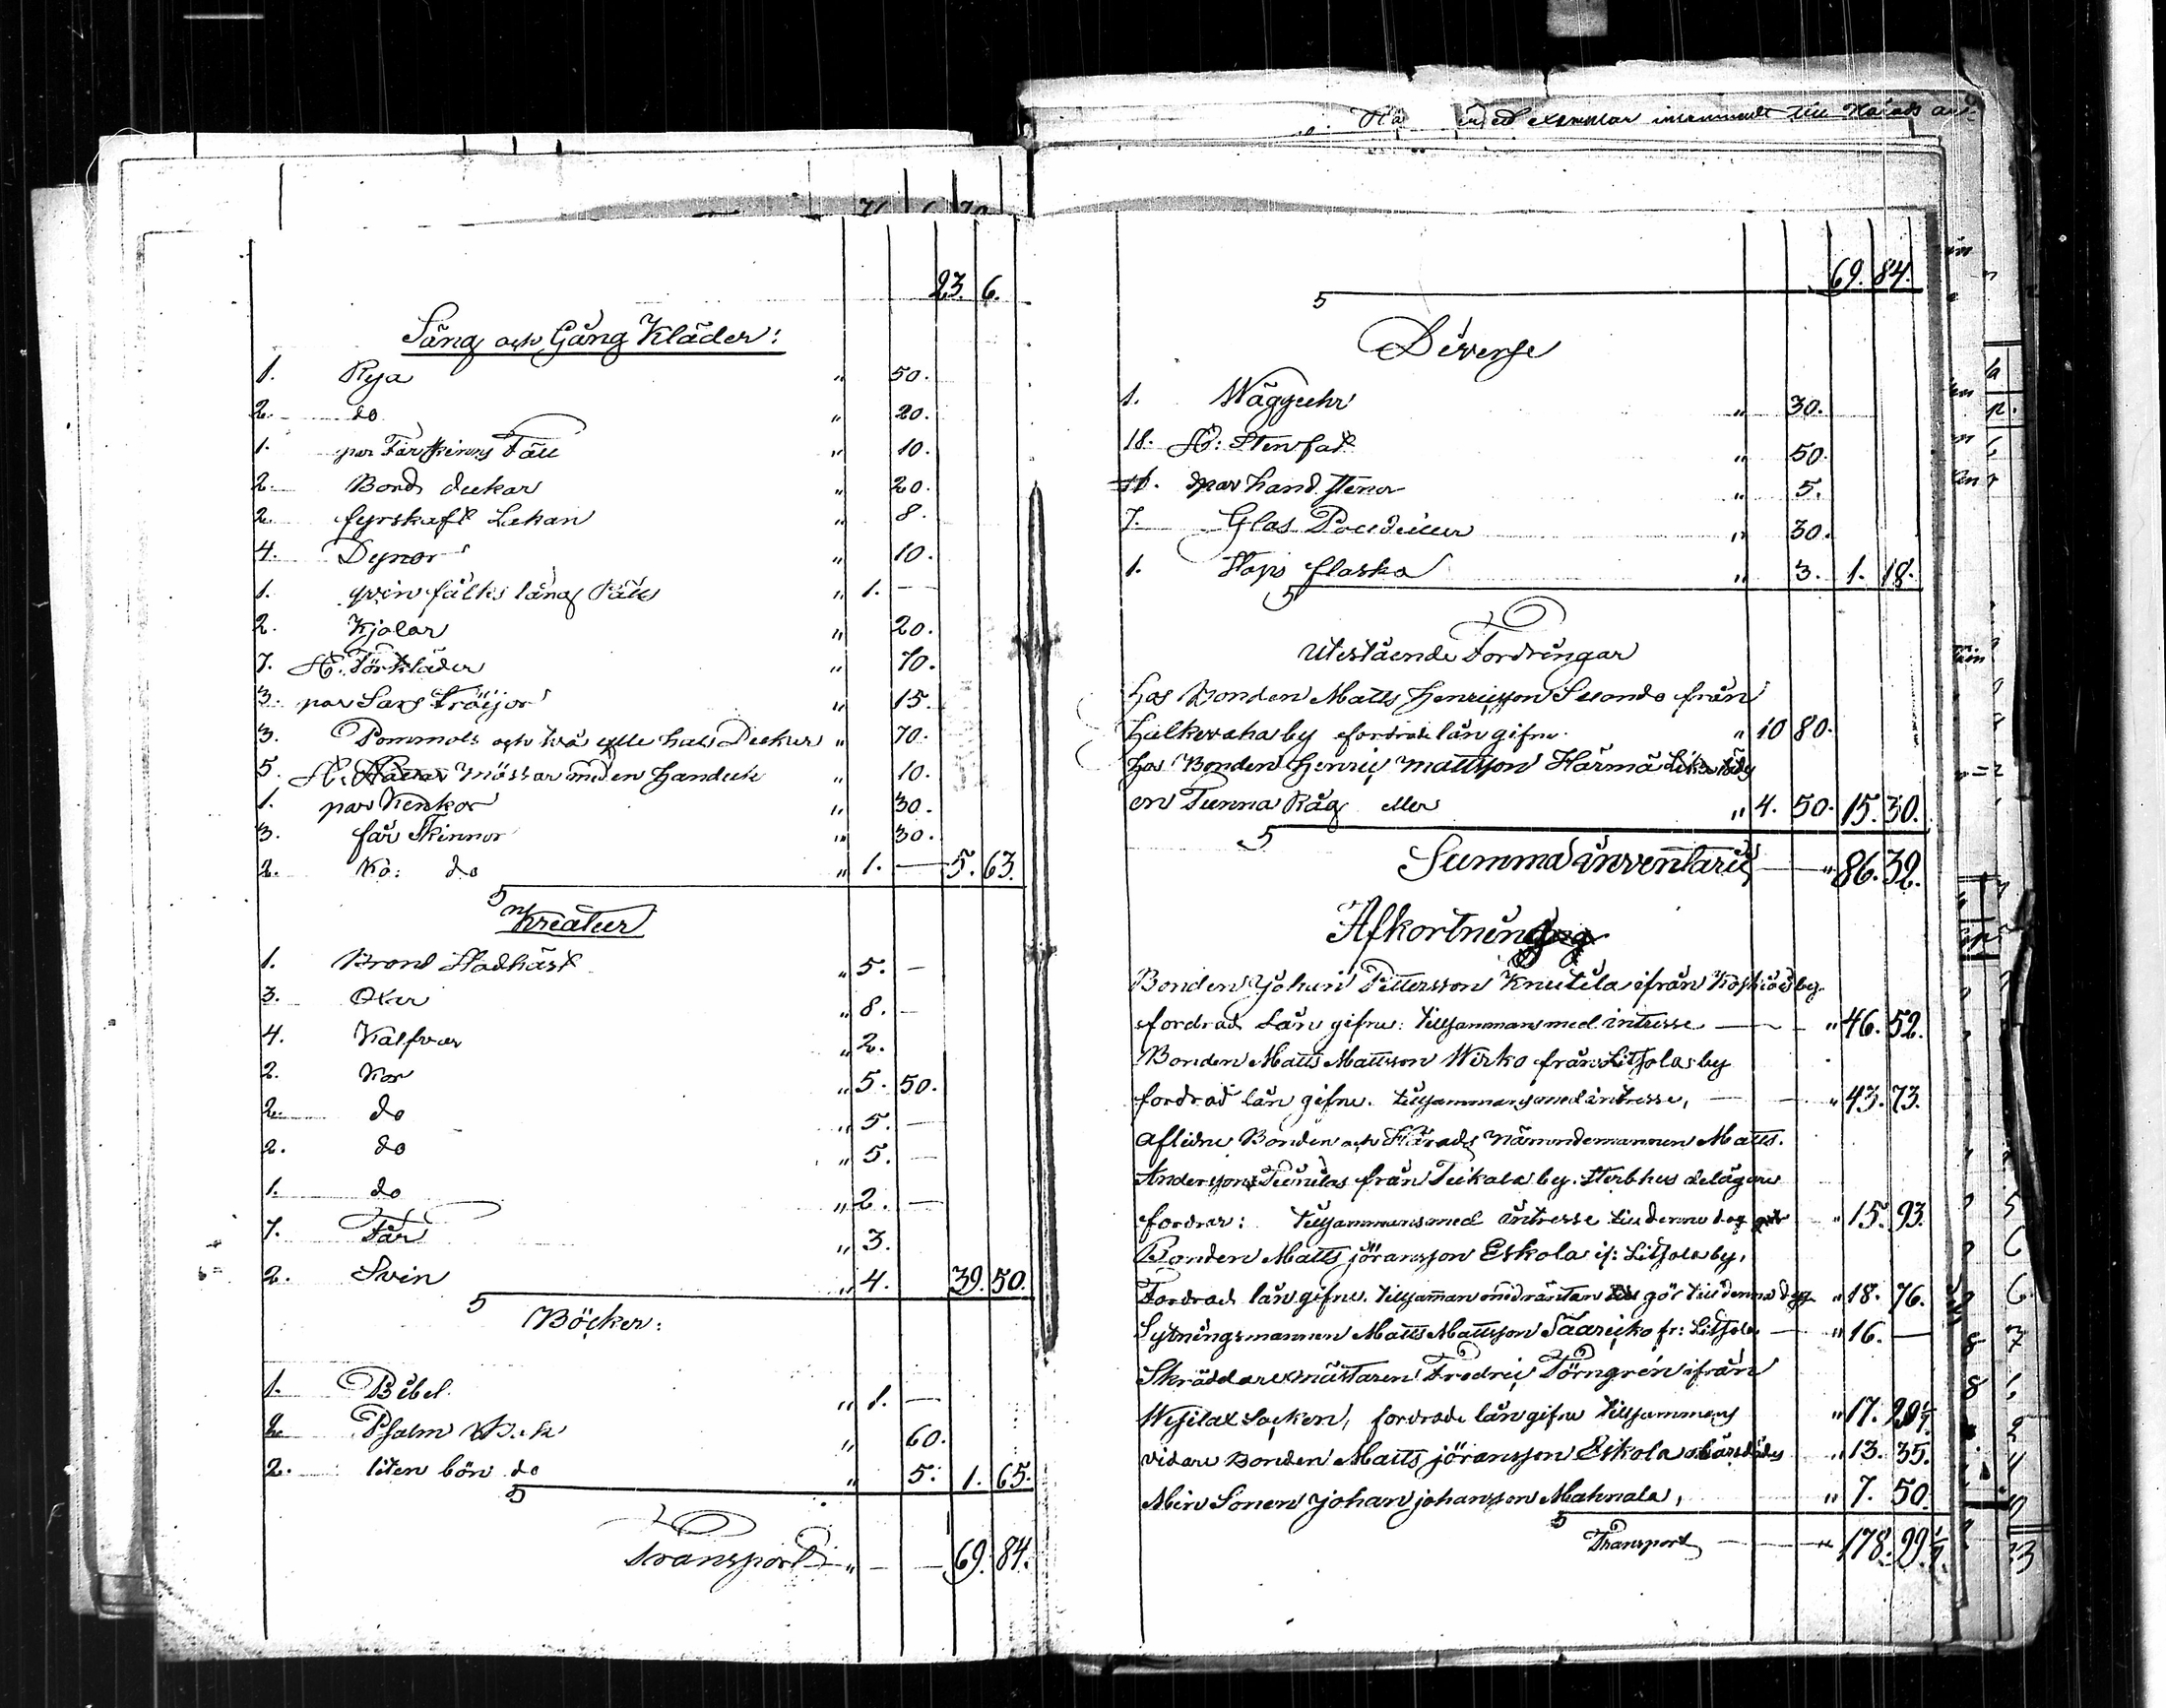 23. 6.
Säng och Gång Kläder:
1. Rya " 50.
2. do " 20.
1. par Fårskinns Fäll " 10.
2. Bords dukar " 20.
2. fyrskaft Lakan " 8.
4. Dynor " 10.
1. qvinfålks lång Päls " 1. —
2. Kjolar " 20.
7. St. Förkläder " 70.
3. par Sars Tröijor " 15.
3. Pommols och två ylle hals Dukar " 70.
5. St. mössar Handuk " 10.
1. par Kenkor " 30.
3. får Skinnor " 30.
2. Ko: do " 1. — 5. 63.
Kreatur
1. Brond Stodhäst " 5. —
3. Oxar " 8. —
4. Kalfvar " 2.
2. Kor " 5. 50.
2. do " 5. —
2. do " 5. —
1. do " 2. —
7. Får " 3.
2. Svin " 4. 39. 50.
Böcker:
1. Bibel " 1. —
2. Psalm Bok " 60.
2. liten bön do " 5. 1. 65.
Transport " — — 69. 84.
exemplar till Härads
69. 84.
Diverse
1. Wägguhr " 30.
18. St: Stenfat " 50.
par hand stenor " 5.
7. Glas Poudeller " 30.
1. Stops flaska " 3. 1. 18.
Utestående Fordringar
hos Bonden Matts Henricsson Suondo från
by fordrade lån gifne " 10 80.
hos Bonden Henric Mattsson Härmä
en Tunna Råg eller " 4. 50. 15. 30.
Summa inventarii — " 86. 32.
Afkortning
Bonden Johan Pettersson Knutila ifrån by
fordrad Lån gifne: tillsammans med intresse — " 46. 52.
Bonden Matts Mattsson Wirko från Litjola by
fordrad lån gifne. tillsammans med intresse, — " 43. 73.
aflidne Bonden och Härads Nämndemannen Matts
Andersson från Tuikala by. Sterbhus delägare
fordrar: tillsammans med intresse till denne dag " 15. 93.
Bonden Matts Jöransson Eskola if: Litjola by,
Fordrad lån gifne. tillsamman med räntan gör till denna dag " 18. 76.
Sytningsmannen Matts Mattsson Saariko fr: Litjola — " 16. —
Skräddaremästaren Fredric Törngrén ifrån
Socken, fordrade lån gifne tillsammans " 17. 20½
vidare Bonden Matts jöransson Eskola " 13. 35.
Min Sonen Johan johansson Mahnala, " 7. 50.
Transport — " 178. 29½